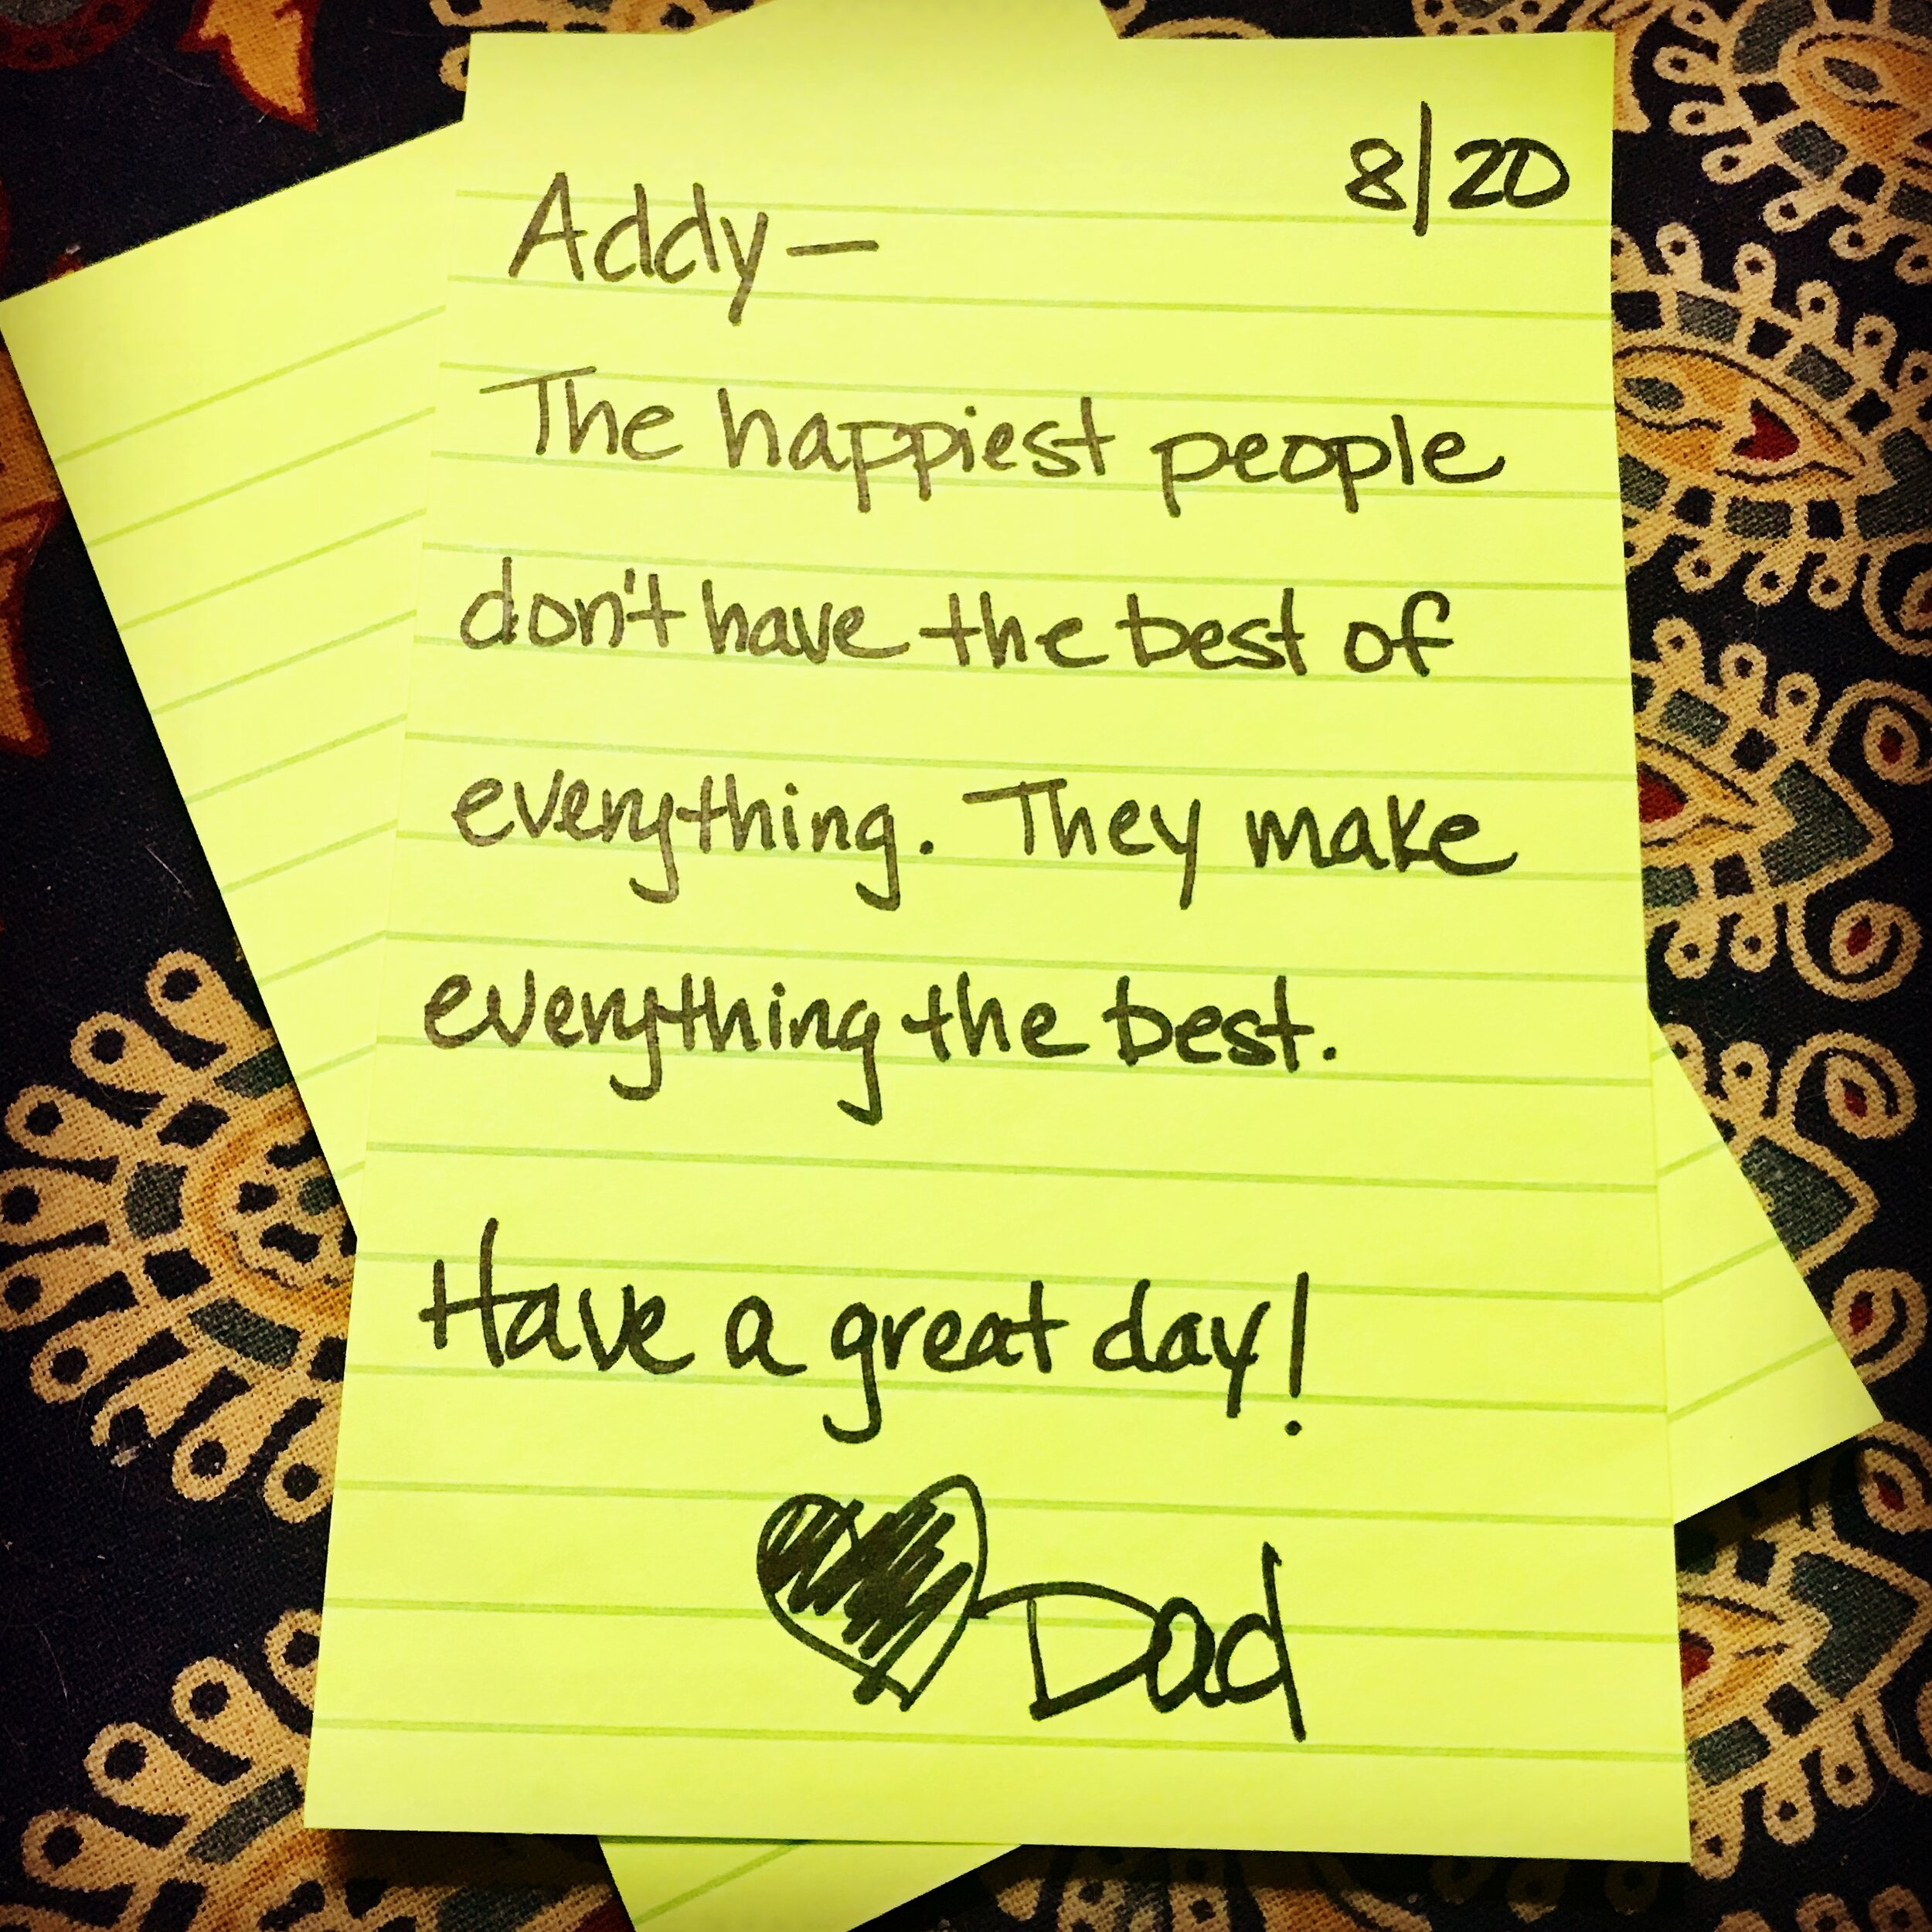 8/20
Addy—
The happiest people
don't have the best of
everything. They make
everything the best.
Have a great day!
Dad